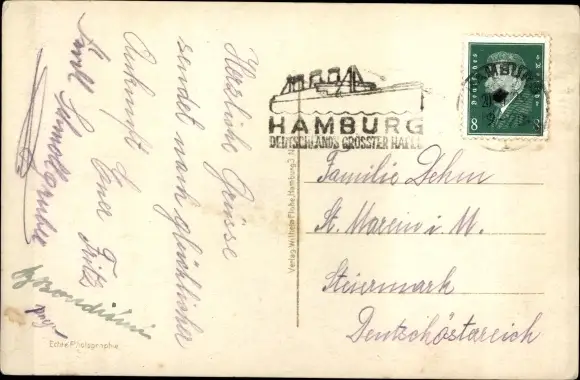 Herzliche Grüsse
sendet nach glücklicher
Ankunft
Euer Fritz
Echte Photographie
Verlag Wilhelm Flohe, Hamburg 3
HAMBURG
DEUTSCHLANDS GRÖSSTER HAFEN
Deutsches Reich
8 8
Familie Dehm
St. Marein i. M.
Steiermark
Deutschöstareich